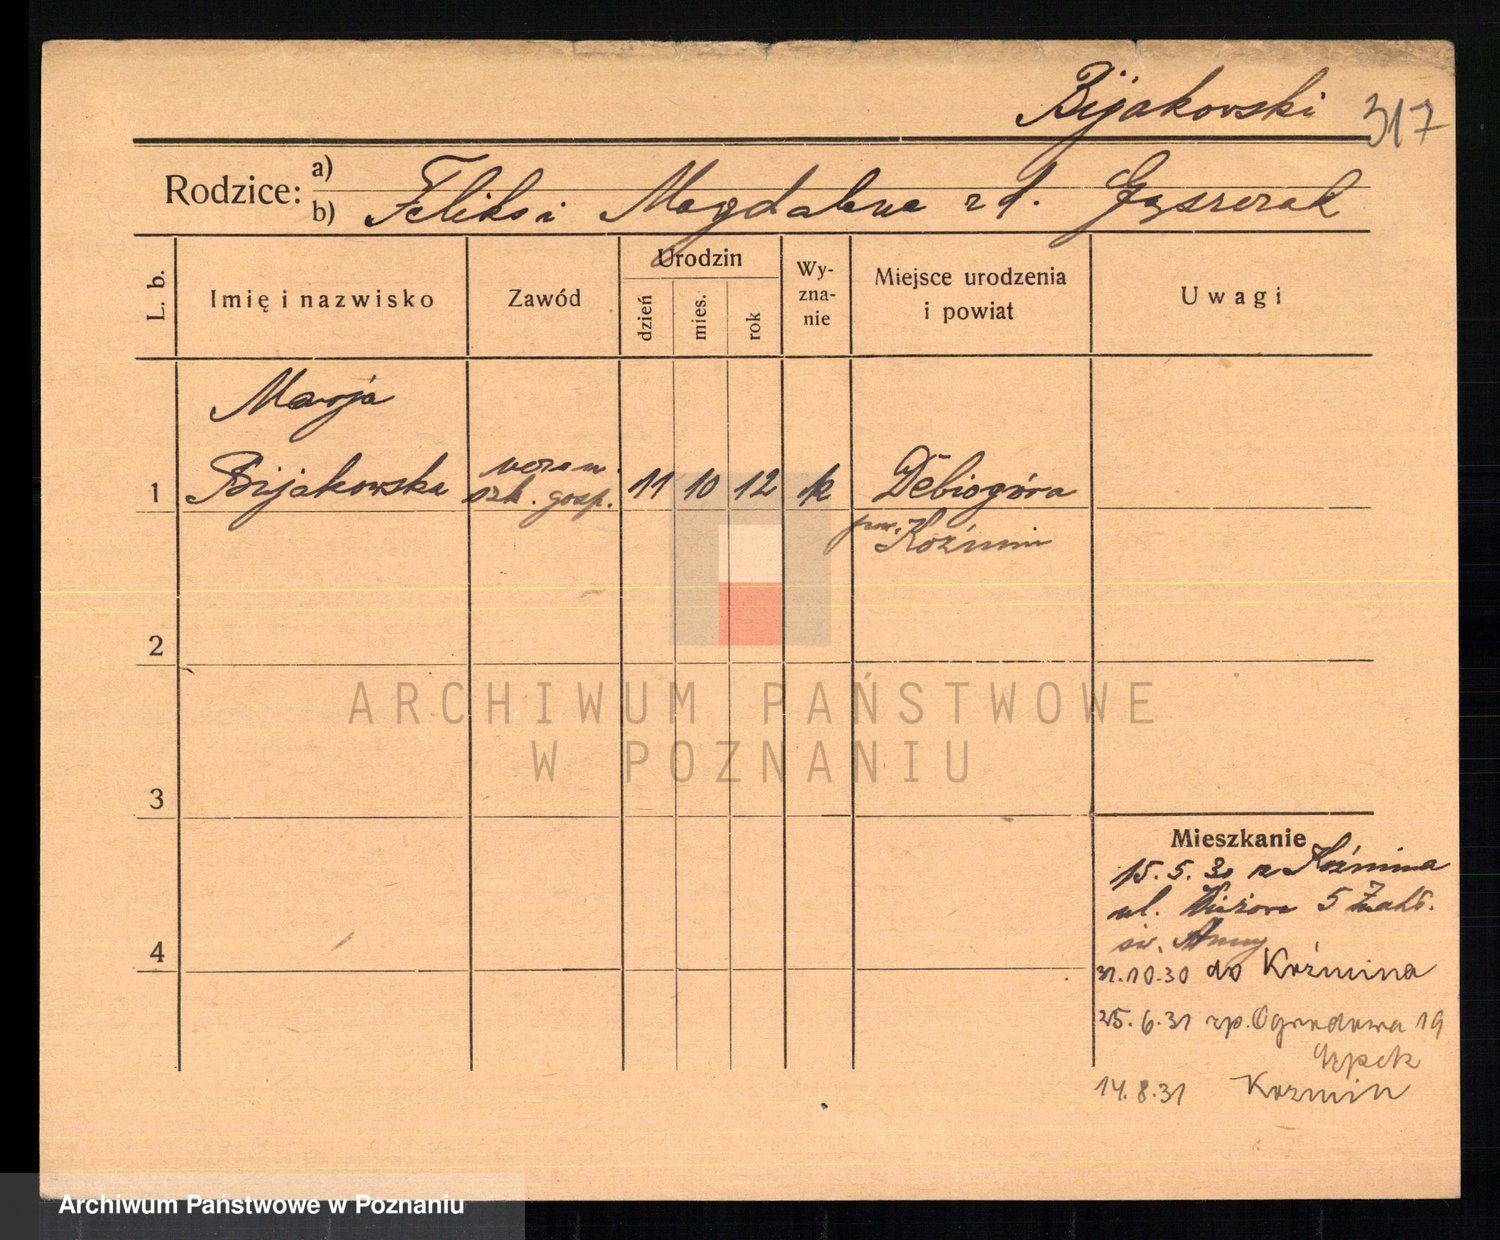 Bijakowski 317
Rodzice: a)
b) Feliks i Magdalena zd. Gąszczak
L. b.
Imię i nazwisko
Zawód
Urodzin
dzień
mies.
rok
Wy-
zna-
nie
Miejsce urodzenia
i powiat
Uwagi
Marja
1 Bijakowska
uczen.
szk. gosp.
11 10 12 k
Dębiogóra
pow. Koźmin
2
ARCHIWUM PAŃSTWOWE
W POZNANIU
3
Mieszkanie
15.5.30 z Koźmina
ul. 5 Zakł.
św. Anny
4
31.10.30 do Koźmina
25.6.31 zp. Ogrodowa 19
14.8.31 Kozmin
Archiwum Państwowe w Poznaniu